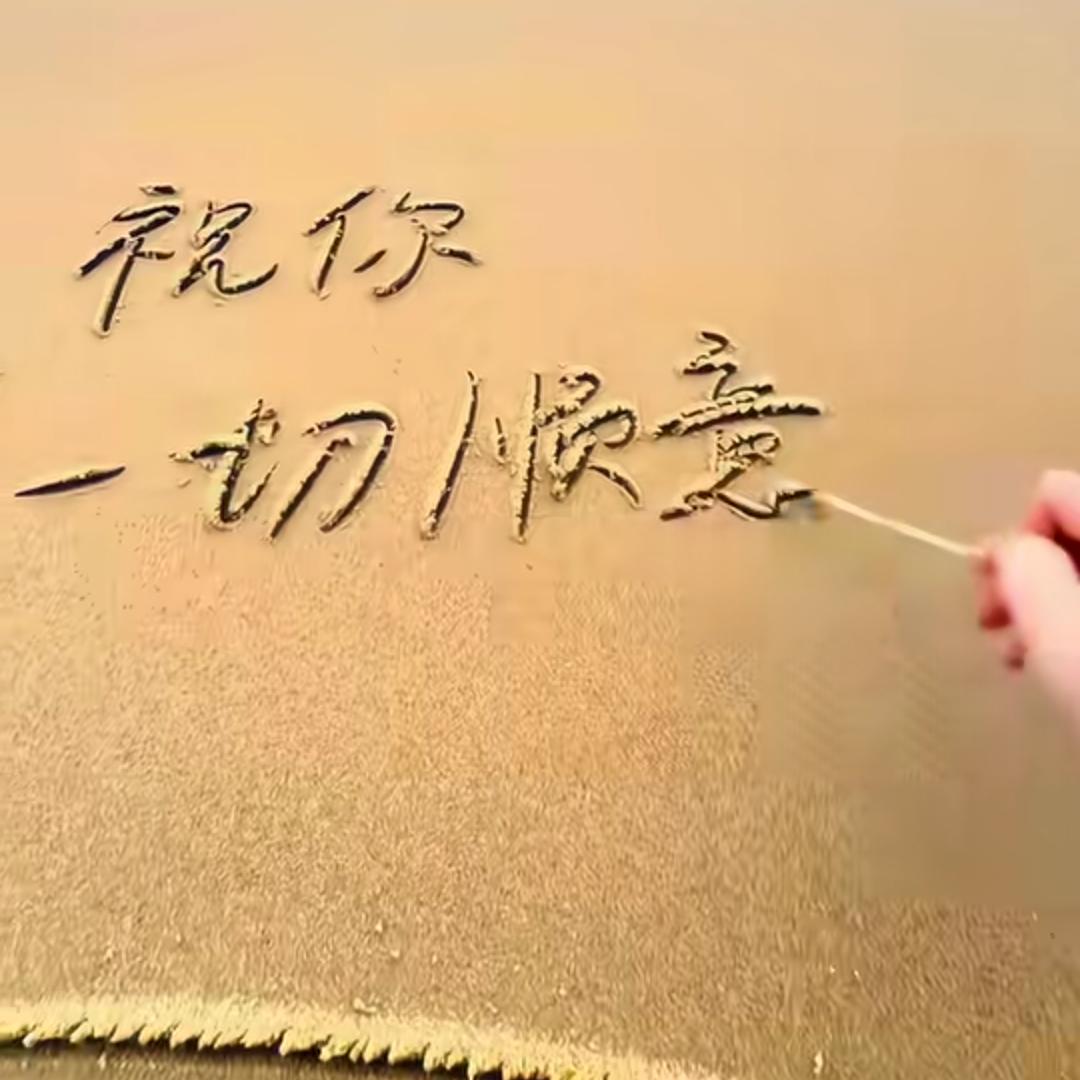 祝你
一切顺意